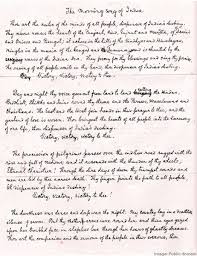 The Morning Song of India
Thou art the ruler of the minds of all people, dispenser of India's destiny.
Thy name rouses the hearts of the Punjab, Sind, Gujrat and Maratha, of Dravid
and Orissa and Bengal; it echoes in the hills of the Vindhyas and Himalayas,
mingles in the music of the and is chanted by the
waves of the Indian sea. They pray for thy blessing and sing thy praise,
the saving of all people waits in thy hand, thou dispenser of India's destiny.
Victory, victory, victory to thee.
Day and night thy voice goes out from land to land calling the Hindus,
Buddhists, Sikhs and Jains round thy throne and the Parsees, Mussalmans and
Christians. The East and the West join hands in their to thee, and the
garland of love is woven. Thou bringest the hearts of all people into the harmony
of one life, thou dispenser of India's destiny,
Victory, victory, victory to thee.
The procession of pilgrims passes over the endless road rugged with the
rise and fall of nations; and it resounds with the thunder of thy wheels,
Eternal Charioteer! Through the dire days of doom thy trumpet sounds and
men are led by thee across death. Thy finger points the path to all people,
Oh dispenser of India's destiny!
Victory, victory, victory to thee
The darkness was dense and deep was the night. My country lay in a deathlike
silence of swoon. But thy mother arms were round her and thine eyes gazed
upon her troubled face in sleepless love through her hours of ghastly dreams.
Thou art the companion and the saviour of the people in their sorrows, thou
Image: Public domain